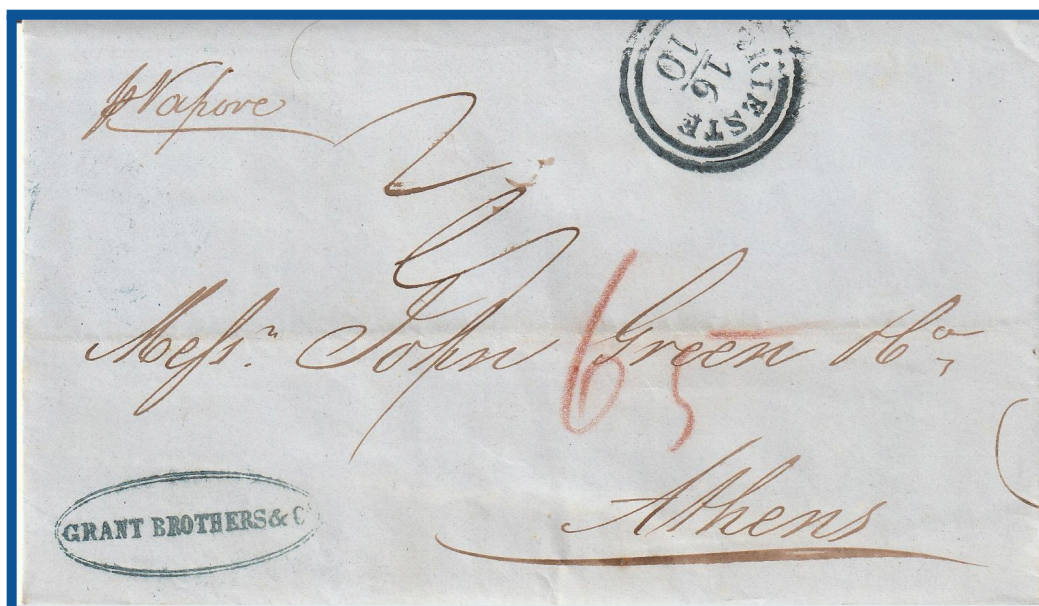 pr Vapore
TRIESTE
16
10
Messrs. John Green & Co,
65
Athens
GRANT BROTHERS & C